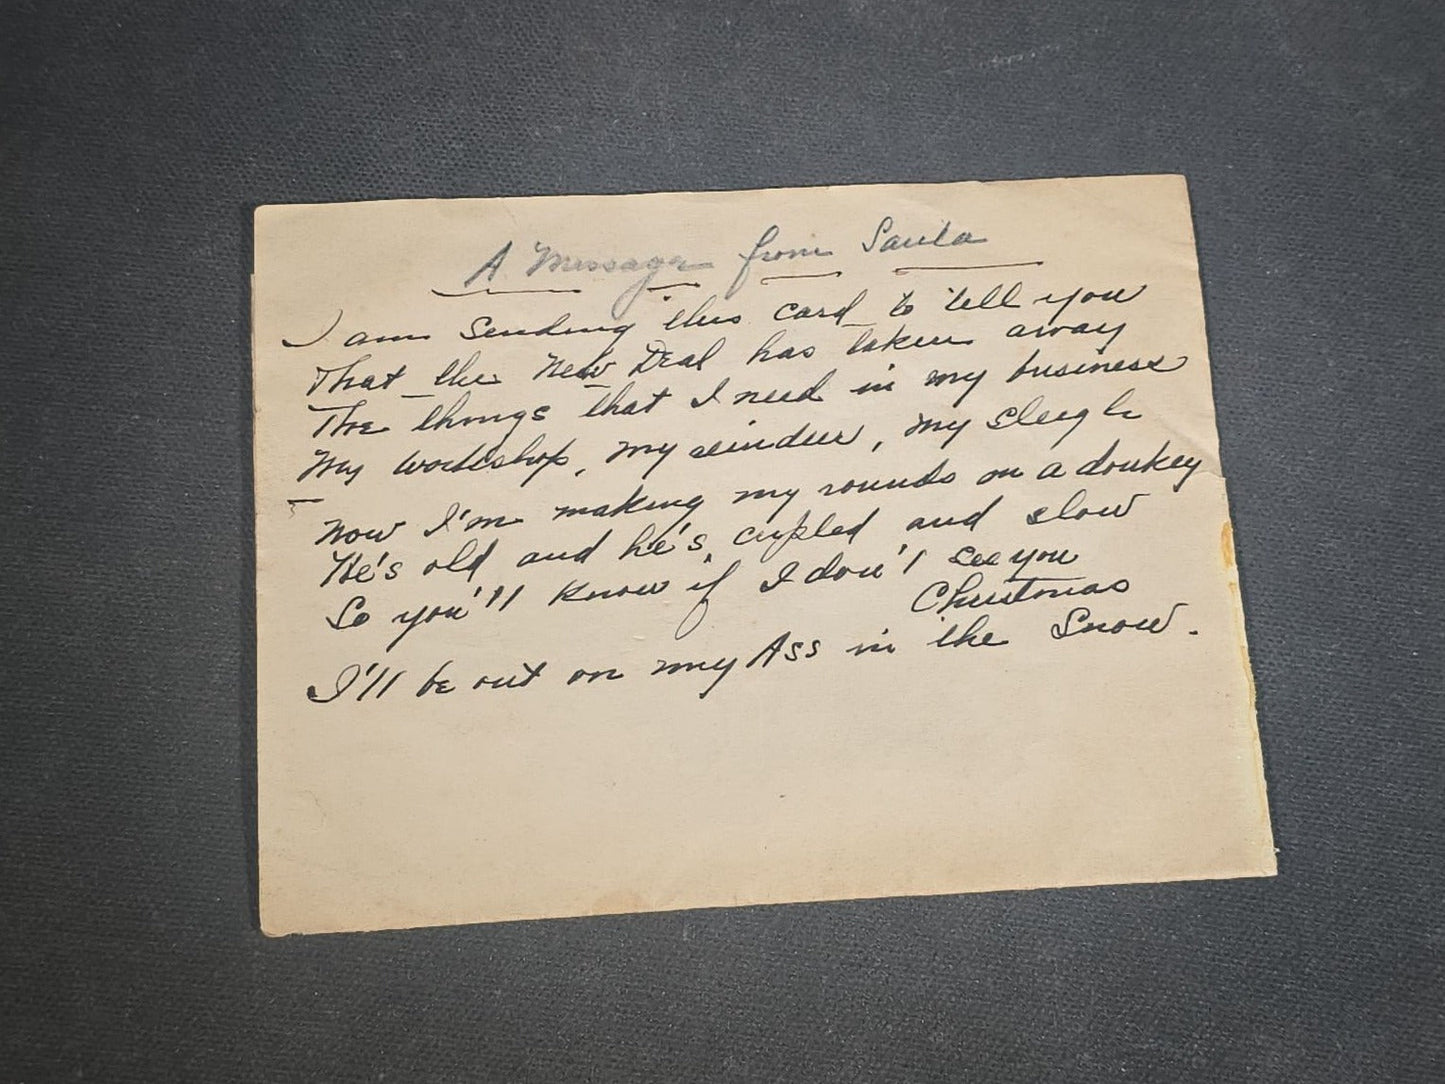 A Message from Santa
I am sending this card to tell you
That the New Deal has taken away
The things that I need in my business
My workshop, my reindeer, my sleigh
Now I'm making my rounds on a donkey
He's old and he's cripled and slow
So you'll know if I don't see you
Christmas
I'll be out on my Ass in the Snow.